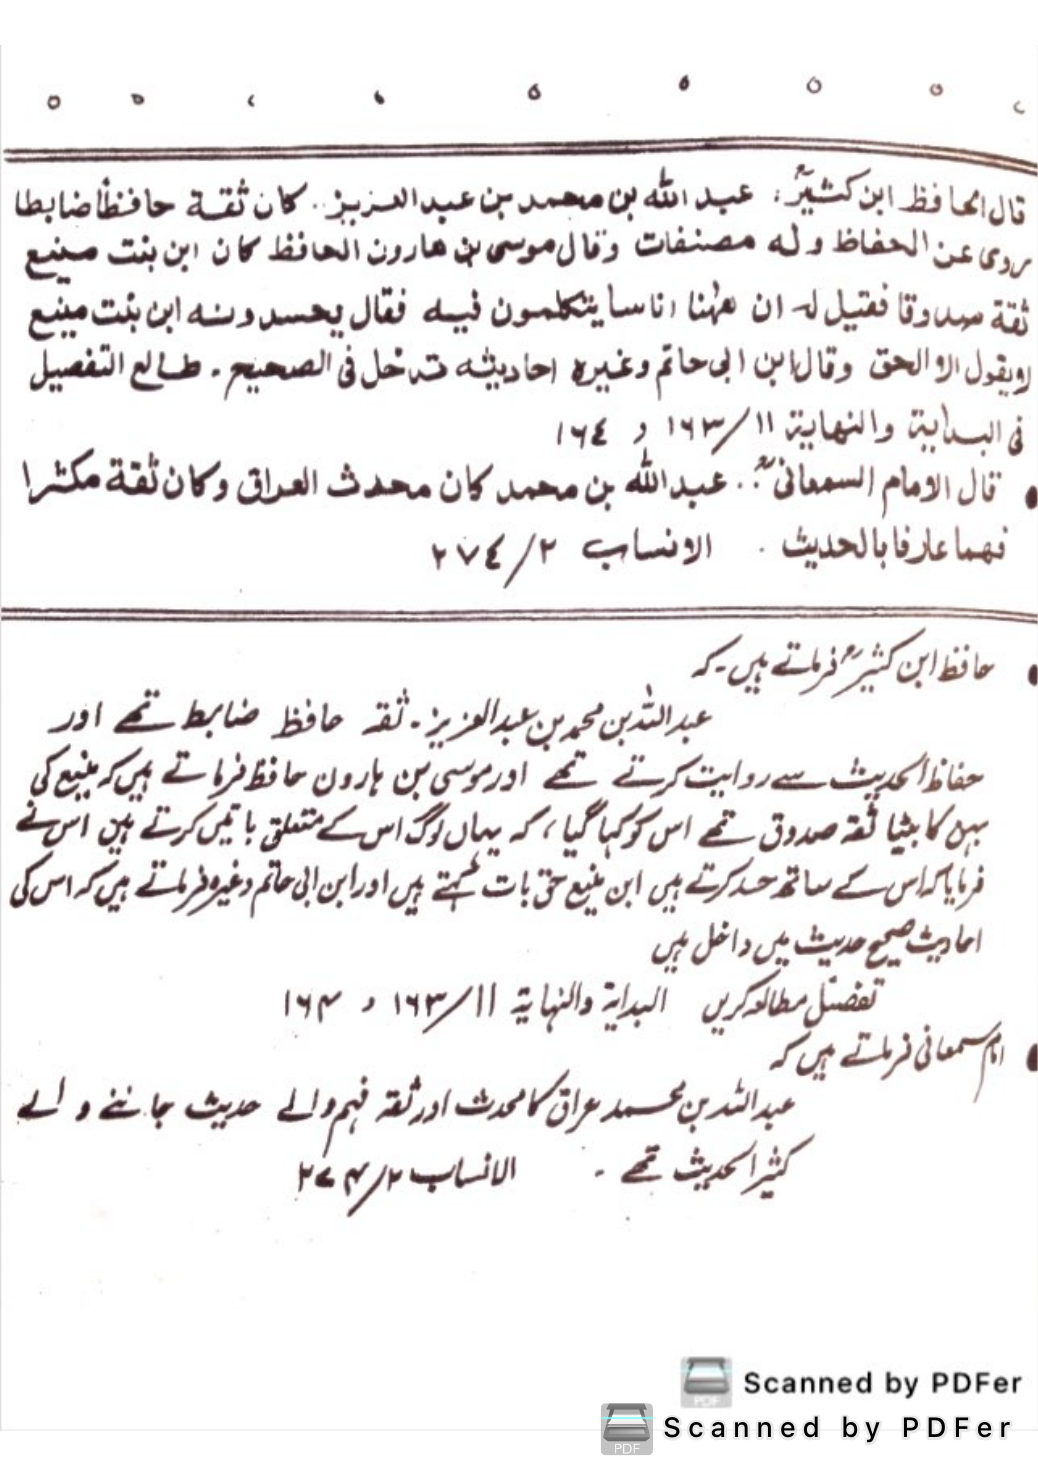 قال الحافظ ابن كثيرؒ: عبد الله بن محمد بن عبد العزيز.. كان ثقة حافظاً ضابطا
روى عن الحفاظ وله مصنفات وقال موسى بن هارون الحافظ كان ابن بنت منيع
ثقة صدوقا فقيل له ان ههنا اناسا يتكلمون فيه فقال يحسدونه ابن بنت منيع
لا يقول الا الحق وقال ابن ابى حاتم وغيره احاديثه تدخل فى الصحيح ـ طالع التفصيل
فى البداية والنهاية ١١/١٦٣ و ١٦٤
• قال الامام السمعانىؒ: . عبد الله بن محمد كان محدث العراق وكان ثقة مكثرا
فهما عارفا بالحديث . الانساب ٢/٢٧٤
• حافظ ابن کثیرؒ فرماتے ہیں۔ کہ
عبد اللہ بن محمد بن عبد العزیز۔ ثقہ حافظ ضابط تھے اور
حفاظ الحدیث سے روایت کرتے تھے اور موسی بن ہارون حافظ فرماتے ہیں کہ منیع کی
بہن کا بیٹا ثقہ صدوق تھے اس کو کہا گیا، کہ یہاں لوگ اس کے متعلق باتیں کرتے ہیں اس نے
فرمایا کہ اس کے ساتھ حسد کرتے ہیں ابن منیع حق بات کہتے ہیں اور ابن ابی حاتم وغیرہ فرماتے ہیں کہ اس کی
احادیث صحیح حدیث میں داخل ہیں
تفصیل مطالعہ کریں البدایۃ والنہایۃ ١١/١٦٣ و ١٦۴
• امام سمعانی فرماتے ہیں کہ
عبد اللہ بن محمد عراق کا محدث اور ثقہ فہم والے حدیث جاننے والے
کثیر الحدیث تھے ۔ الانساب ٢/٢٧۴
Scanned by PDFer
Scanned by PDFer